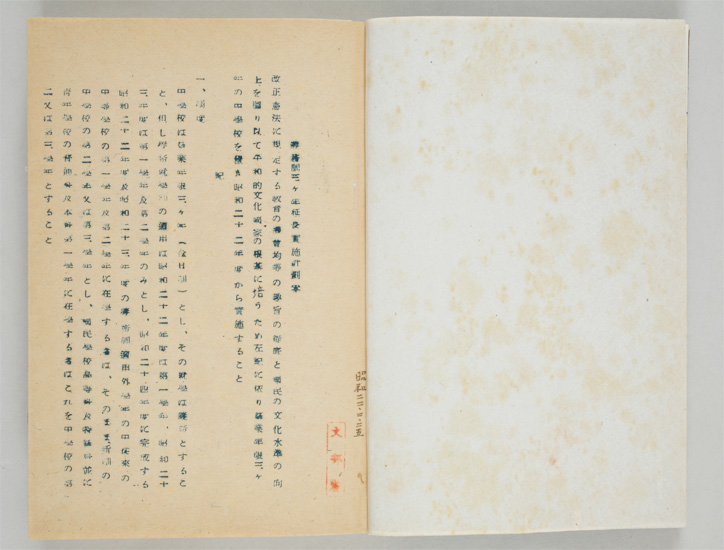 昭和二二・二・二五
文部省
義務制三ヶ年延長実施計劃案
改正憲法に規定する教育の機会均等の趣旨の徹底と国民の文化水準の向
上を図り以て平和的文化国家の根基に培うため左記に依り修業年限三ヶ
年の中学校を 昭和二十二年度から実施すること
記
一、制度
中学校は修業年限三ヶ年(全日制)とし、その就学は義務とするこ
と、但し学 の適用は昭和二十二年度は第一学年、昭和二十
三年度は第一学年及第二学年のみとし、昭和二十四年度に完成する
昭和二十二年度及昭和二十三年度の義務制適用外学年の中従来の
中等学校の第一学年及第二学年に在学する者は、そのまま新制の
中学校の第二学年又は第三学年とし、国民学校高等科及 に
青年学校の普通科及本科第一学年に在学する者はこれを中学校の第
二又は第三学年とすること